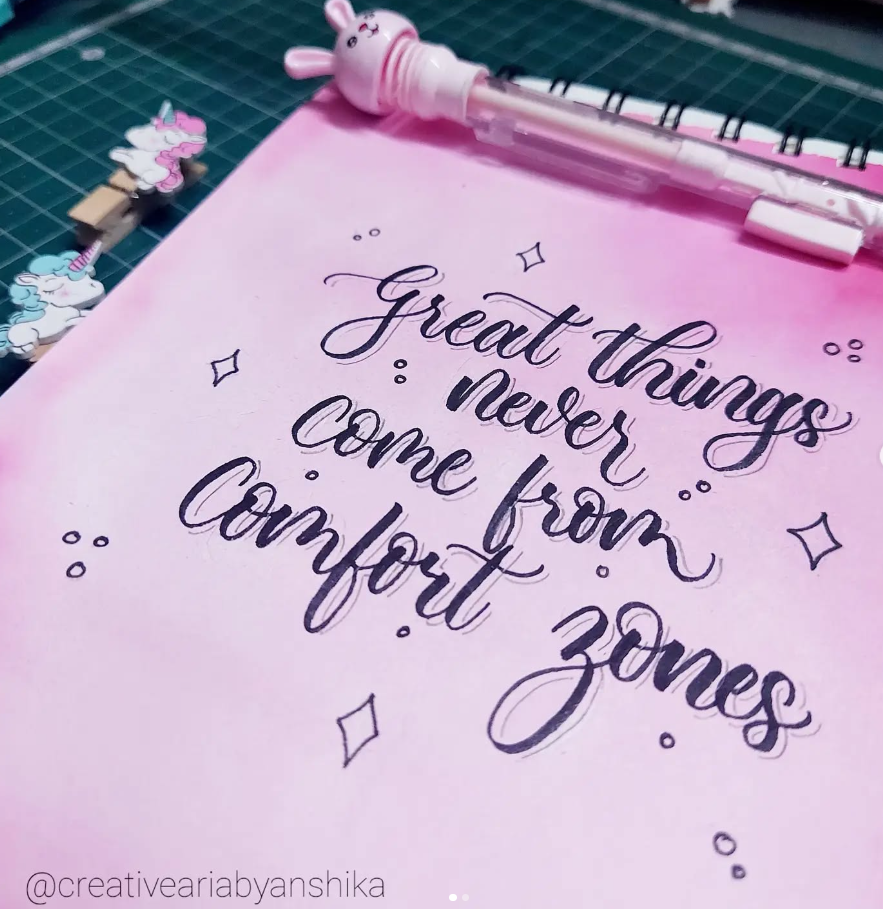 Great things
never
come from
comfort zones
@creativeariabyanshika